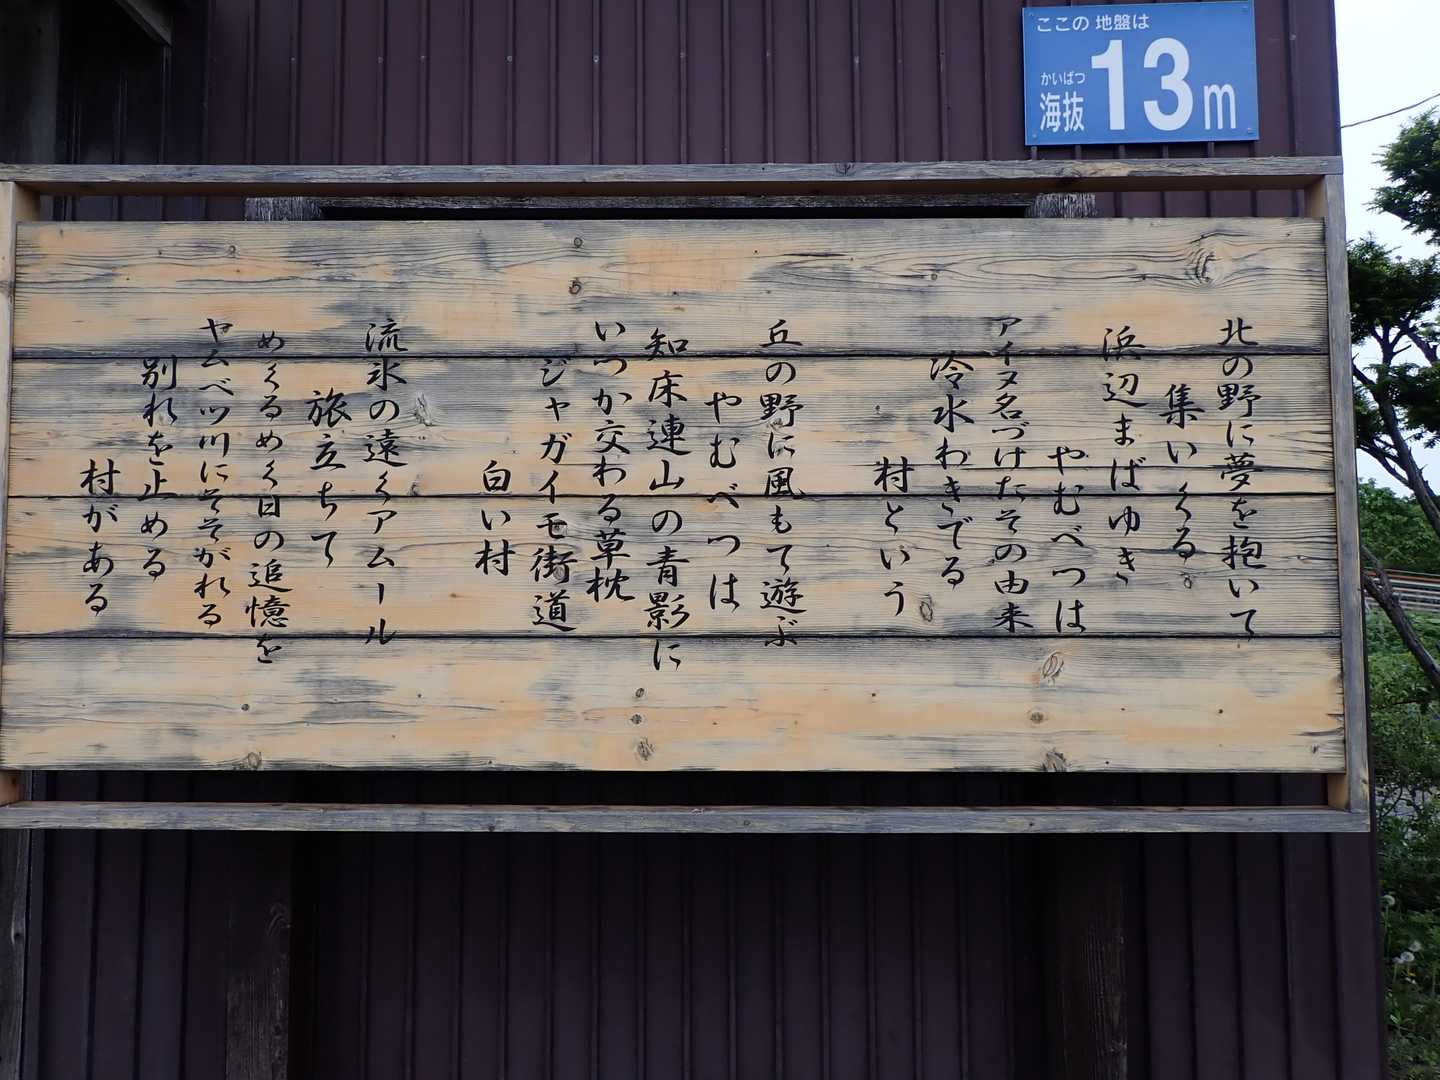 ここの地盤は
かいばつ
海抜13m
北の野に夢を抱いて
集いくる
浜辺まばゆき
やむべつは
アイヌ名づけたその由来
冷水わきでる
村という
丘の野に風もて遊ぶ
やむべつは
知床連山の青影に
いつか交わる草枕
ジャガイモ街道
白い村
流氷の遠くアムール
旅立ちて
めくるめく日の追憶を
ヤムベツ川にそそがれる
別れを止める
村がある